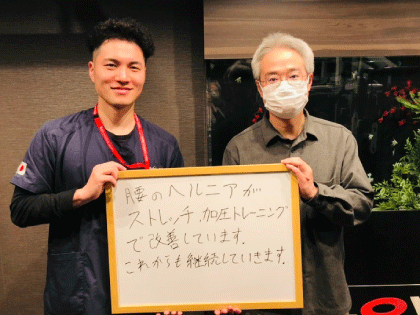 腰のヘルニアが
ストレッチ、加圧トレーニング
で改善しています。
これからも継続していきます。